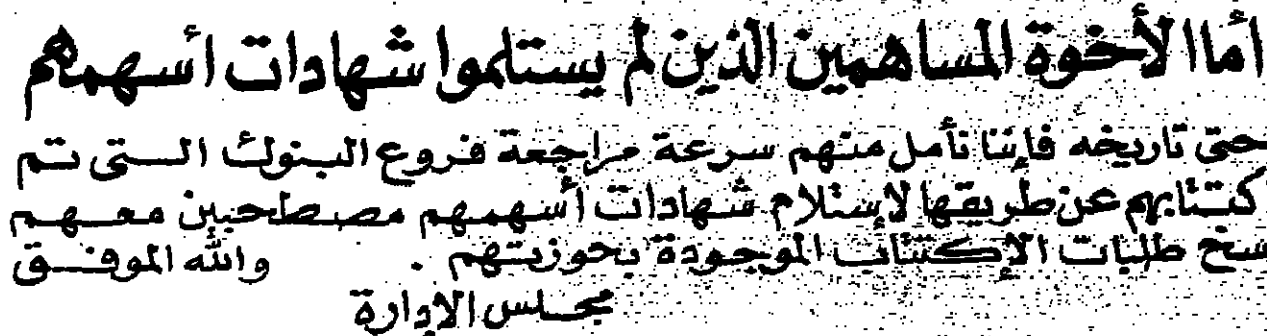 أما الأخوة المساهمين الذين لم يستلموا شهادات أسهمهم
حتى تاريخه فإننا نأمل منهم سرعة مراجعة فروع البنوك التى تم
كتتابهم عن طريقها لإستلام شهادات أسهمهم مصطحبين معهم
سخ طلبات الإكتتاب الموجودة بحوزتهم . والله الموفق
مجلس الادارة